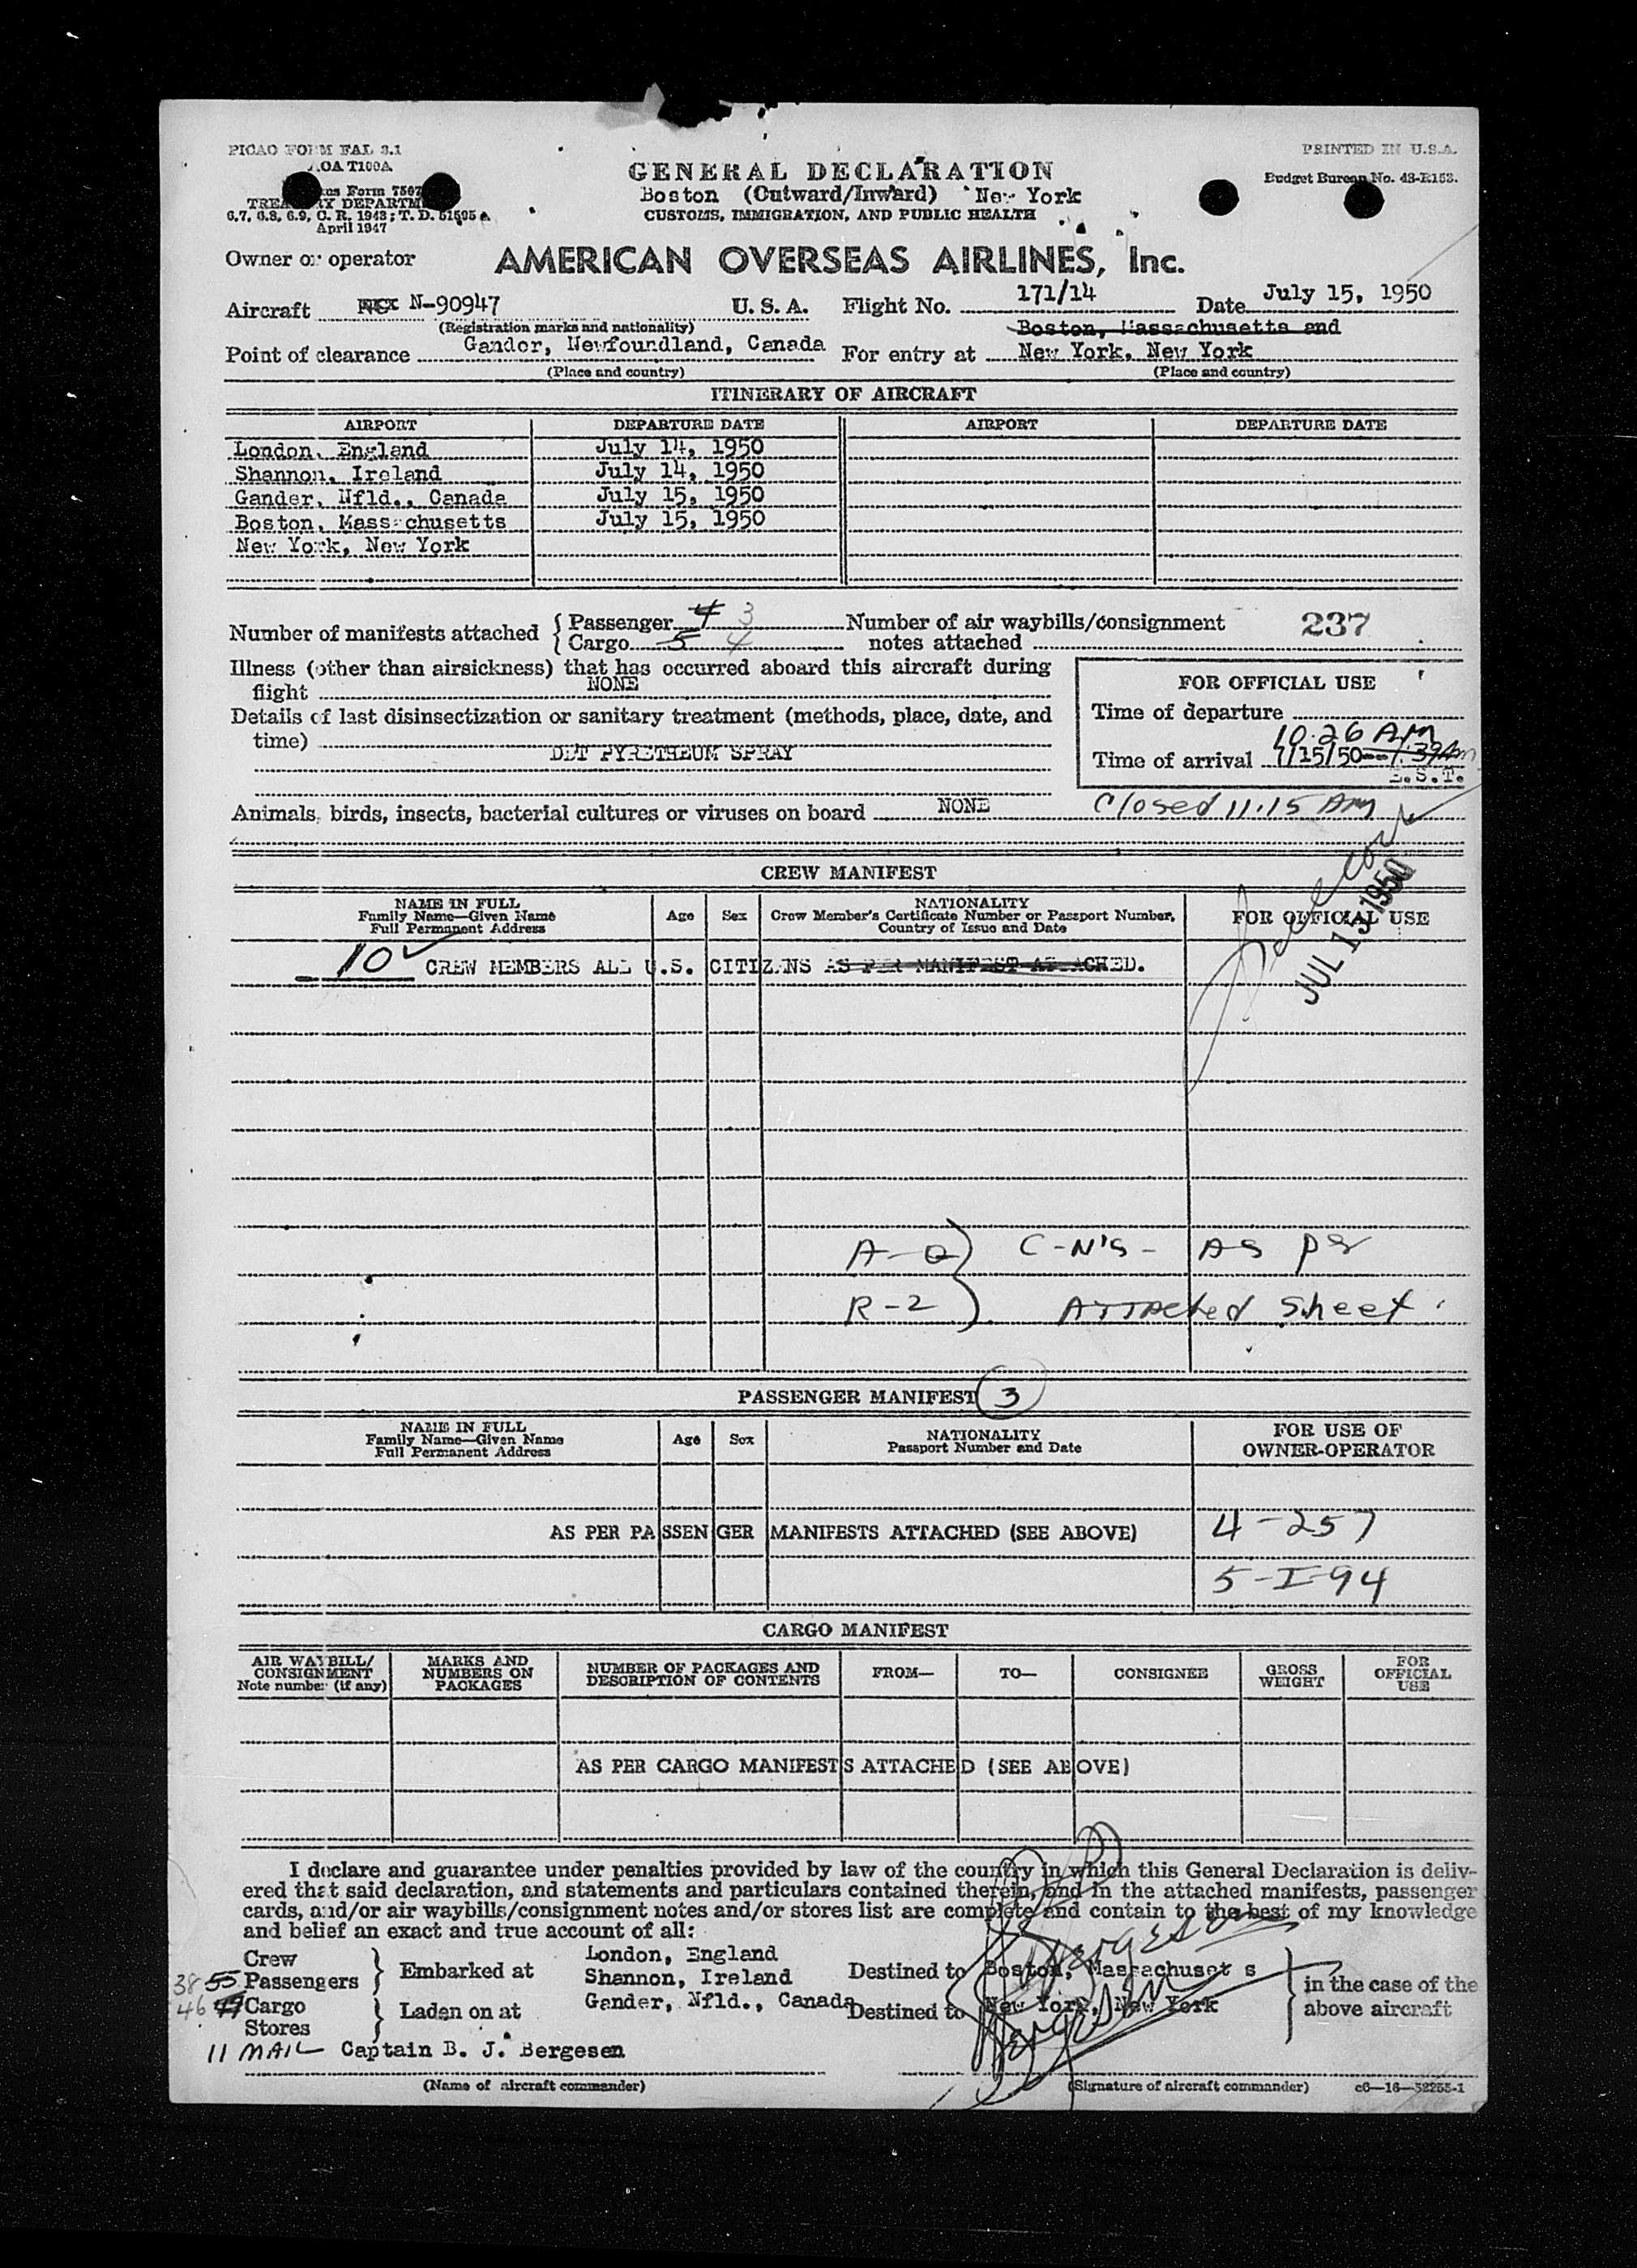 PICAO FORM FAL 3.1
AOA T100A
Form 7507
TREASURY DEPARTMENT
6.7, 6.8, 6.9, C. R. 1943; T. D. 51595
April 1947
PRINTED IN U.S.A.
Budget Bureau No. 43-R153.
GENERAL DECLARATION
Boston (Outward/Inward) New York
CUSTOMS, IMMIGRATION, AND PUBLIC HEALTH
Owner or operator AMERICAN OVERSEAS AIRLINES, Inc.
Aircraft N-90947 U. S. A. Flight No. 171/14 Date July 15, 1950
(Registration marks and nationality) Boston, Massachusetts and
Point of clearance Gander, Newfoundland, Canada For entry at New York, New York
(Place and country) (Place and country)
ITINERARY OF AIRCRAFT
AIRPORT DEPARTURE DATE AIRPORT DEPARTURE DATE
London, England July 14, 1950
Shannon, Ireland July 14, 1950
Gander, Nfld., Canada July 15, 1950
Boston, Massachusetts July 15, 1950
New York, New York
Number of manifests attached { Passenger 4 3 Number of air waybills/consignment 237
Cargo 5 4 notes attached
Illness (other than airsickness) that has occurred aboard this aircraft during
flight NONE
Details of last disinsectization or sanitary treatment (methods, place, date, and
time)
DDT PYRETHEUM SPRAY
FOR OFFICIAL USE
Time of departure
10.26 AM
Time of arrival 7/15/50
E.S.T.
Animals, birds, insects, bacterial cultures or viruses on board NONE Closed 11.15 AM
CREW MANIFEST
NAME IN FULL
Family Name—Given Name
Full Permanent Address
Age Sex
NATIONALITY
Crew Member's Certificate Number or Passport Number,
Country of Issue and Date
FOR OFFICIAL USE
JUL 15 1950
10 CREW MEMBERS ALL U.S. CITIZANS AS PER MANIFEST ATTACHED.
A-Q) C-N's - As per
R-2). Attached Sheet
PASSENGER MANIFEST 3
NAME IN FULL
Family Name—Given Name
Full Permanent Address
Age Sex
NATIONALITY
Passport Number and Date
FOR USE OF
OWNER-OPERATOR
AS PER PASSENGER MANIFESTS ATTACHED (SEE ABOVE) 4-257
5-I-94
CARGO MANIFEST
AIR WAYBILL/
CONSIGNMENT
Note number (if any)
MARKS AND
NUMBERS ON
PACKAGES
NUMBER OF PACKAGES AND
DESCRIPTION OF CONTENTS
FROM— TO— CONSIGNEE
GROSS
WEIGHT
FOR
OFFICIAL
USE
AS PER CARGO MANIFESTS ATTACHED (SEE ABOVE)
I declare and guarantee under penalties provided by law of the country in which this General Declaration is deliv-
ered that said declaration, and statements and particulars contained therein, and in the attached manifests, passenger
cards, and/or air waybills/consignment notes and/or stores list are complete and contain to the best of my knowledge
and belief an exact and true account of all:
Crew London, England
38 55 Passengers } Embarked at Shannon, Ireland Destined to Boston, Massachusetts
46 Cargo } Laden on at Gander, Nfld., Canada Destined to New York, New York
Stores
in the case of the
above aircraft
11 MAIL Captain B. J. Bergesen
(Name of aircraft commander) (Signature of aircraft commander) c6—16—52255-1